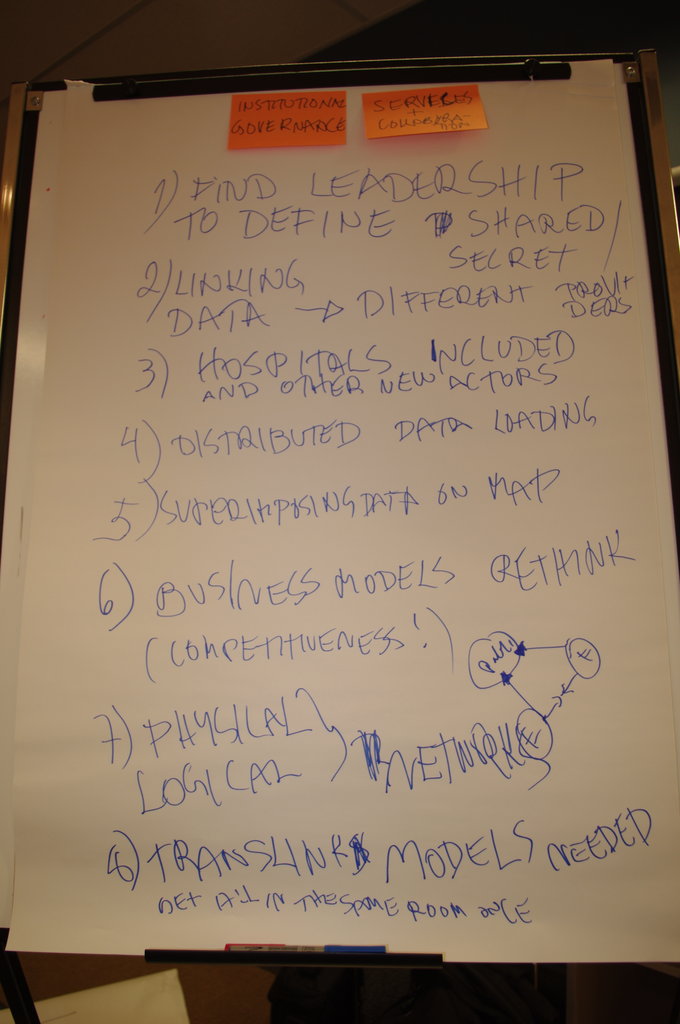 INSTITUTIONAL
GOVERNANCE
SERVICES
+
COLLABORA-
TION
1) FIND LEADERSHIP
TO DEFINE SHARED/
SECRET
2) LINKING
DATA → DIFFERENT PROVI-
DERS
3) HOSPITALS INCLUDED
AND OTHER NEW ACTORS
4) DISTRIBUTED DATA LOADING
5) SUPERIMPOSING DATA ON MAP
6) BUSINESS MODELS RETHINK
(COMPETITIVENESS!)
public
7) PHYSICAL
LOGICAL } NETWORKS
8) TRANSLINK MODELS NEEDED
GET ALL IN THE SAME ROOM ONCE